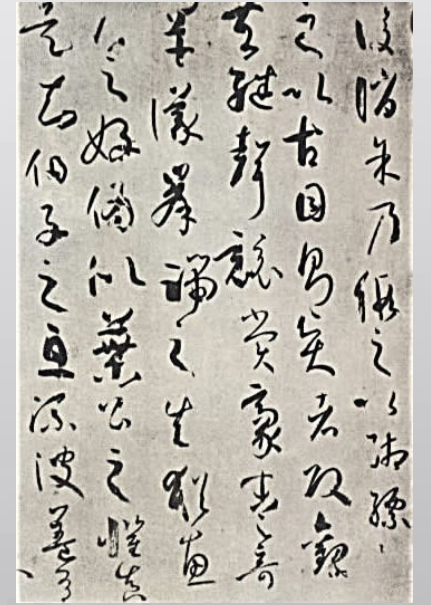 陵誚余乃假之以緗縹
之以古目則賢者改觀
夫繼聲競賞豪末之奇
罕議鋒端之失猶惠
侯之好偽似葉公之懼真
是知伯子之息流波蓋有